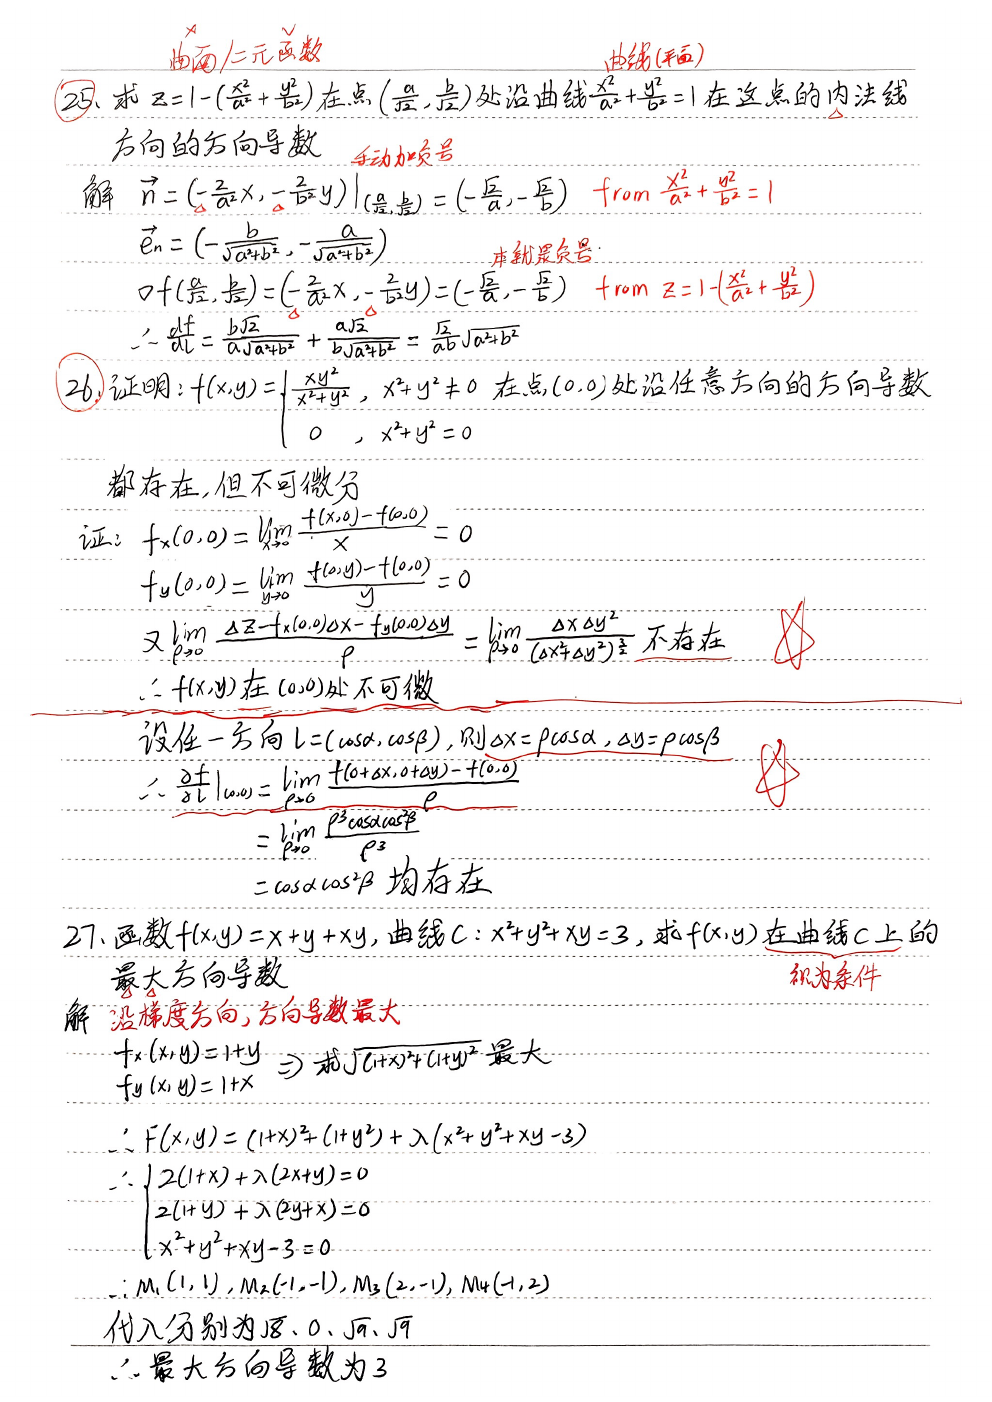 曲面/二元函数 曲线(平面)
25、求 z=1-(x²/a²+y²/b²)在点(a/√2, b/√2)处沿曲线x²/a²+y²/b²=1在这点的内法线
方向的方向导数
手动加负号
解 n⃗=(-2/a²x, -2/b²y)|(a/√2, b/√2)=(-√2/a, -√2/b) from x²/a²+y²/b²=1
e⃗n=(-b/√(a²+b²), -a/√(a²+b²))
本就是负号.
▽f(a/√2, b/√2)=(-2/a²x, -2/b²y)=(-√2/a, -√2/b) from z=1-(x²/a²+y²/b²)
∴ df/dl=b√2/(a√(a²+b²))+a√2/(b√(a²+b²))=√2/ab√(a²+b²)
26、证明:f(x,y)={xy²/(x²+y²), x²+y²≠0 在点(0,0)处沿任意方向的方向导数
0 , x²+y²=0
都存在,但不可微分
证: fx(0,0)=lim x→0 (f(x,0)-f(0,0))/x=0
fy(0,0)=lim y→0 (f(0,y)-f(0,0))/y=0
又lim ρ→0 (Δz-fx(0,0)Δx-fy(0,0)Δy)/ρ=lim ρ→0 ΔxΔy²/(Δx²+Δy²)^(3/2) 不存在
∴ f(x,y)在(0,0)处不可微
设任一方向 l=(cosα,cosβ),则Δx=ρcosα,Δy=ρcosβ
∴ ∂f/∂l|(0,0)=lim ρ→0 (f(0+Δx,0+Δy)-f(0,0))/ρ
=lim ρ→0 ρ³cosαcos²β/ρ³
=cosαcos²β 均存在
27、函数f(x,y)=x+y+xy,曲线C:x²+y²+xy=3,求f(x,y)在曲线C上的
最大方向导数 视为条件
解 沿梯度方向,方向导数最大
fx(x,y)=1+y
⇒ 求√((1+x)²+(1+y)²) 最大
fy(x,y)=1+x
∴ F(x,y)=(1+x)²+(1+y²)+λ(x²+y²+xy-3)
∴ {2(1+x)+λ(2x+y)=0
2(1+y)+λ(2y+x)=0
x²+y²+xy-3=0
∴ M₁(1,1), M₂(-1,-1), M₃(2,-1), M₄(-1,2)
代入分别为√8、0、√9、√9
∴ 最大方向导数为3